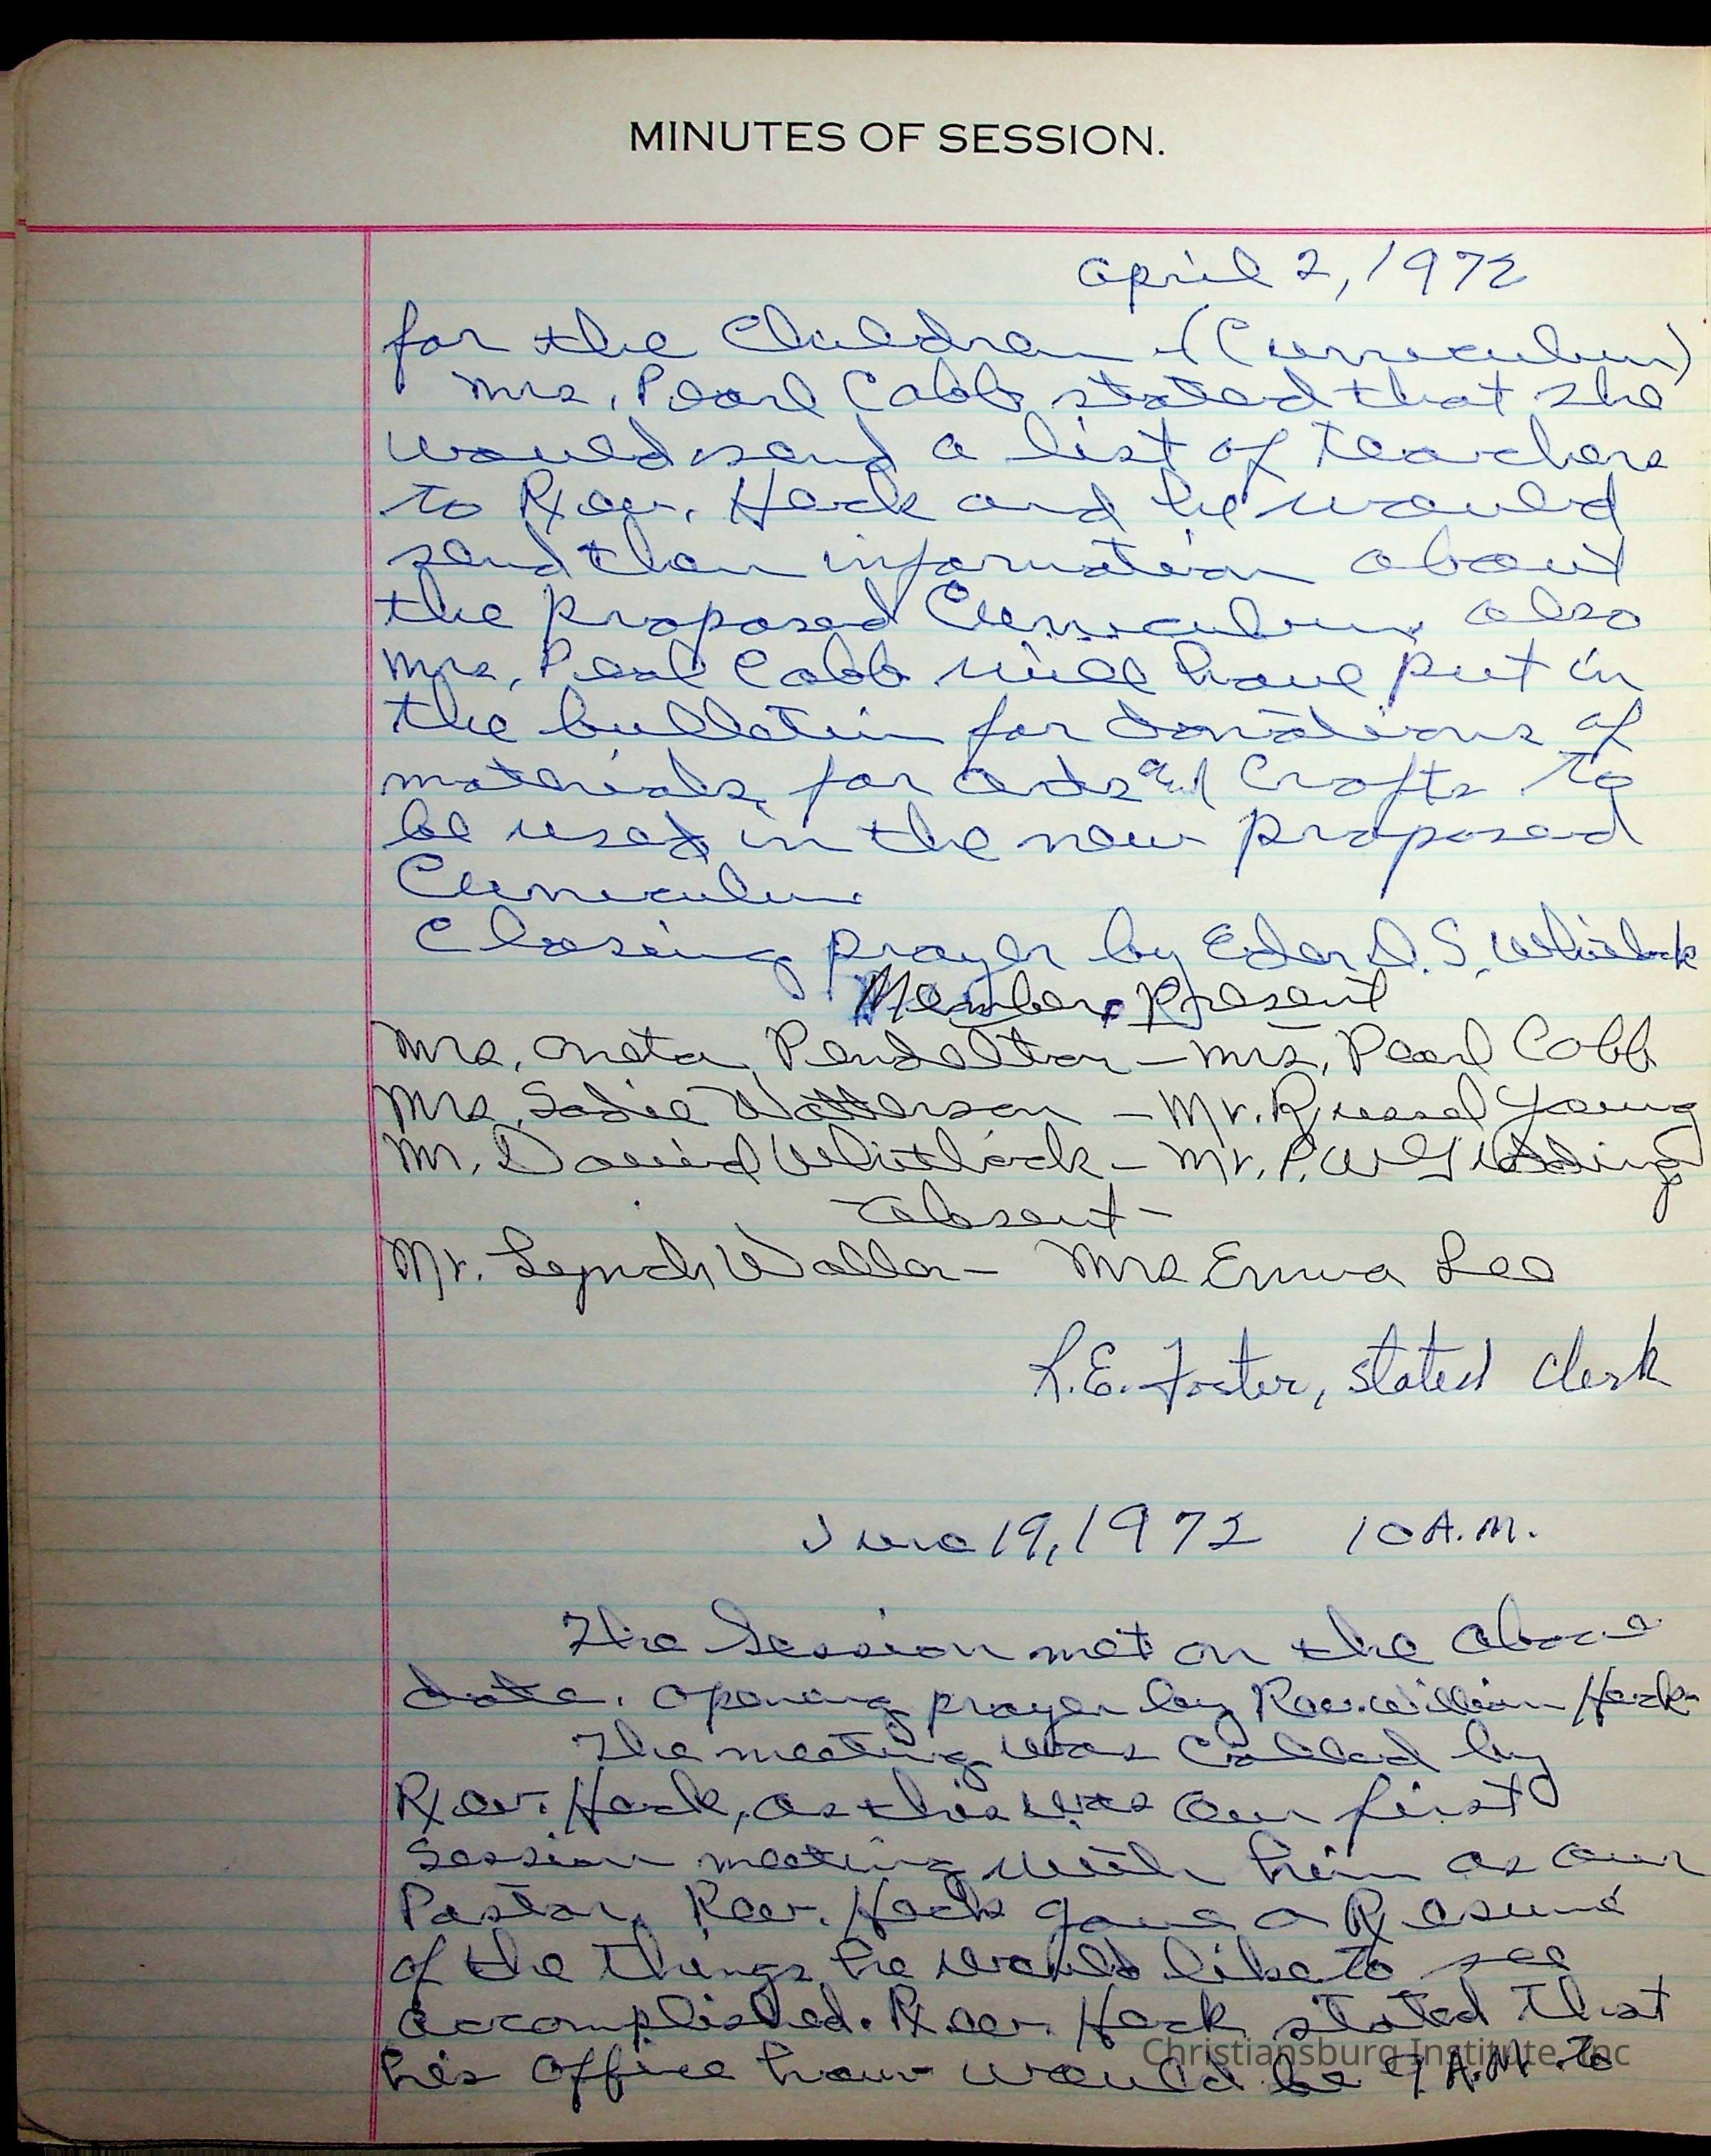 MINUTES OF SESSION.
April 2, 1972
for the Children - (Curriculum)
Mrs. Pearl Cobb stated that she
would send a list of teachers
to Rev. Hack and he would
send them information about
the proposed Curriculum. also
Mrs. Pearl Cobb will have put in
the bulletin for donations of
materials, for Arts and Crafts to
be used in the new proposed
Curriculum.
Closing prayer by Elder D. S. Whitlock
Members Present
Mrs. Oneta Pendelton - Mrs. Pearl Cobb
Mrs. Sadie Watterson - Mr. Russel Young
Mr. David Whitlock - Mr. P. W. Giddings
Absent -
Mr. Lynch Waller - Mrs Emma Lee
R.E. Foster, stated Clerk
June 19, 1972 10 A.M.
The Session met on the above
date. opening prayer by Rev. William Hack.
The meeting was called by
Rev. Hack, as this was our first
Session meeting with him as our
Pastor, Rev. Hack gave a Resumé
of the things he would like to see
accomplished. Rev. Hack stated that
his Office hour would be 9 A.M. to
Christiansburg Institute, Inc